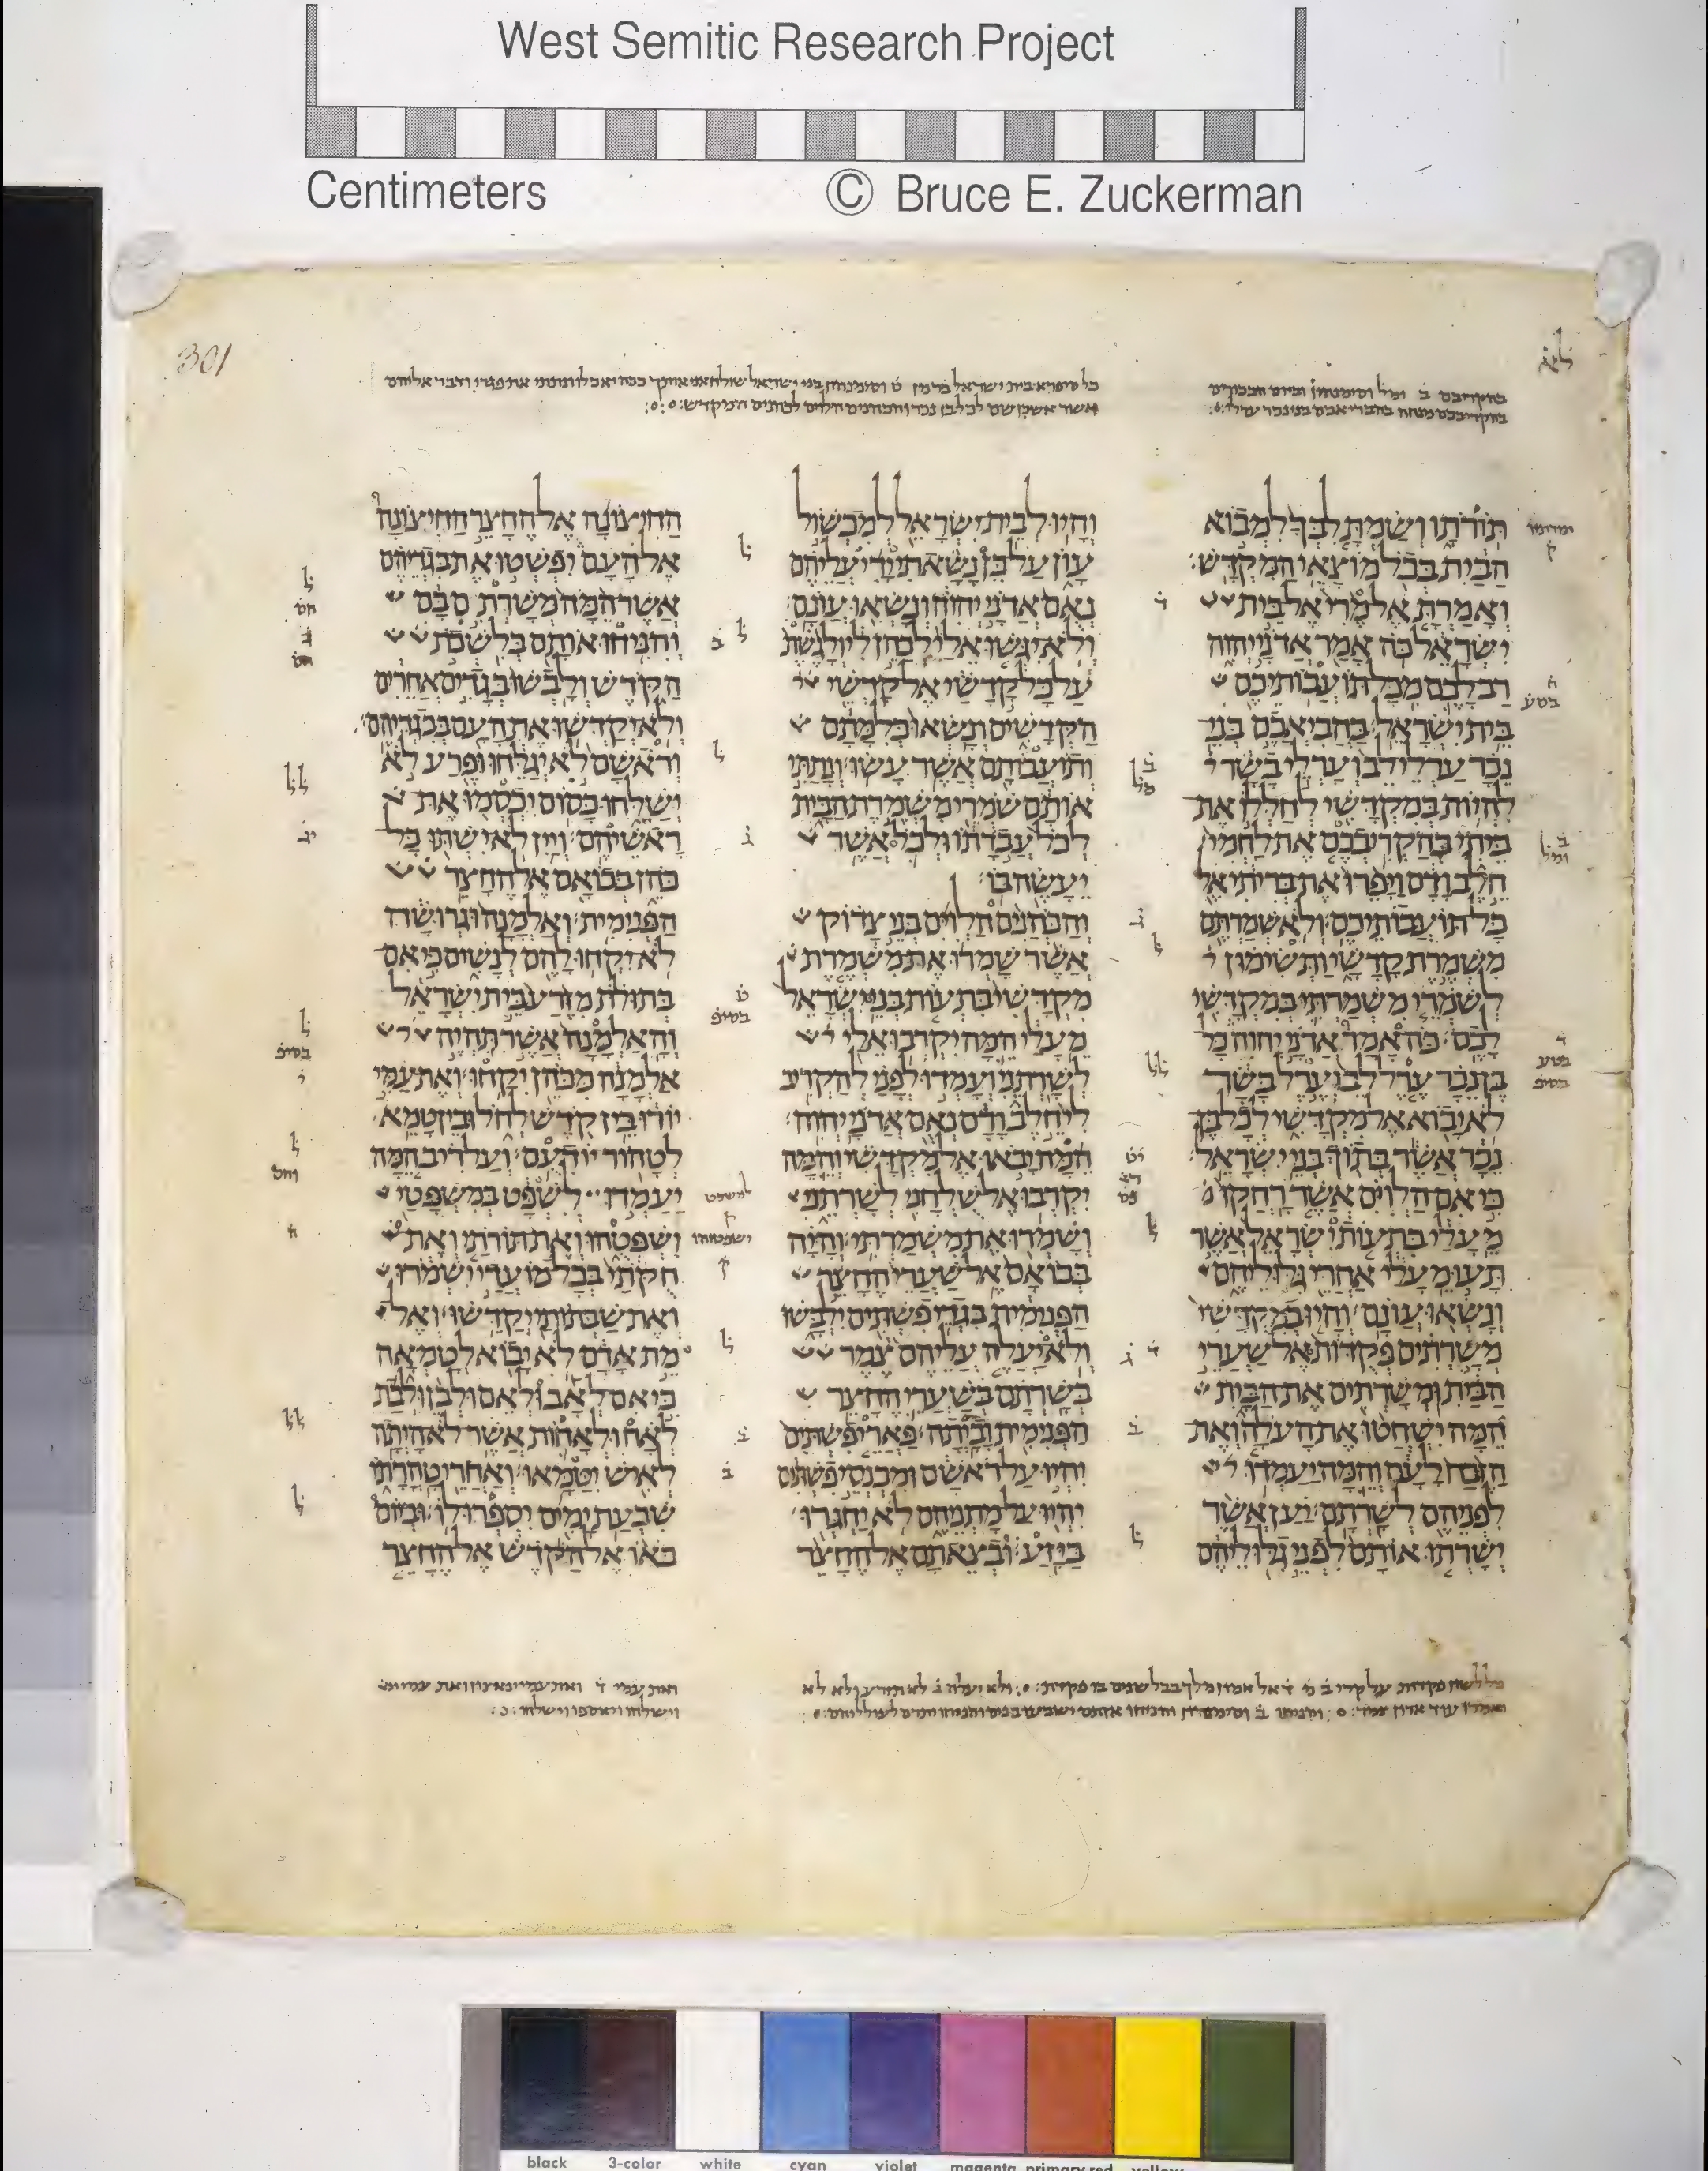 West Semitic Research Project
Centimeters © Bruce E. Zuckerman
301
תּוֹרֹתָו וְשַׂמְתָּ לִבְּךָ לִמְבוֹא
הַבַּיִת בְּכֹל מוֹצָאֵי הַמִּקְדָּשׁ׃
וְאָמַרְתָּ אֶל־מֶרִי אֶל־בֵּית
יִשְׂרָאֵל כֹּה אָמַר אֲדֹנָי יְהוִה
רַב־לָכֶם מִכָּל־תּוֹעֲבוֹתֵיכֶם
בֵּית יִשְׂרָאֵל׃ בַּהֲבִיאֲכֶם בְּנֵי
נֵכָר עַרְלֵי־לֵב וְעַרְלֵי בָשָׂר
לִהְיוֹת בְּמִקְדָּשִׁי לְחַלְּלוֹ אֶת
בֵּיתִי בְּהַקְרִיבְכֶם אֶת־לַחְמִי
חֵלֶב וָדָם וַיָּפֵרוּ אֶת־בְּרִיתִי אֶל
כָּל־תּוֹעֲבוֹתֵיכֶם׃ וְלֹא שְׁמַרְתֶּם
מִשְׁמֶרֶת קָדָשָׁי וַתְּשִׂימוּן
לְשֹׁמְרֵי מִשְׁמַרְתִּי בְּמִקְדָּשִׁי
לָכֶם׃ כֹּה־אָמַר אֲדֹנָי יְהוִה כָּל
בֶּן־נֵכָר עֶרֶל לֵב וְעֶרֶל בָּשָׂר
לֹא יָבוֹא אֶל־מִקְדָּשִׁי לְכָל־בֶּן
נֵכָר אֲשֶׁר בְּתוֹךְ בְּנֵי יִשְׂרָאֵל׃
כִּי אִם־הַלְוִיִּם אֲשֶׁר רָחֲקוּ
מֵעָלַי בִּתְעוֹת יִשְׂרָאֵל אֲשֶׁר
תָּעוּ מֵעָלַי אַחֲרֵי גִּלּוּלֵיהֶם
וְנָשְׂאוּ עֲוֹנָם׃ וְהָיוּ בְמִקְדָּשִׁי
מְשָׁרְתִים פְּקֻדּוֹת אֶל־שַׁעֲרֵי
הַבַּיִת וּמְשָׁרְתִים אֶת־הַבָּיִת
הֵמָּה יִשְׁחֲטוּ אֶת־הָעֹלָה וְאֶת
הַזֶּבַח לָעָם וְהֵמָּה יַעַמְדוּ
לִפְנֵיהֶם לְשָׁרְתָם׃ יַעַן אֲשֶׁר
יְשָׁרְתוּ אוֹתָם לִפְנֵי גִלּוּלֵיהֶם
וְהָיוּ לְבֵית־יִשְׂרָאֵל לְמִכְשׁוֹל
עָוֹן עַל־כֵּן נָשָׂאתִי יָדִי עֲלֵיהֶם
נְאֻם אֲדֹנָי יְהוִה וְנָשְׂאוּ עֲוֹנָם׃
וְלֹא־יִגְּשׁוּ אֵלַי לְכַהֵן לִי וְלָגֶשֶׁת
עַל־כָּל־קָדָשַׁי אֶל־קָדְשֵׁי
הַקְּדָשִׁים וְנָשְׂאוּ כְּלִמָּתָם
וְתוֹעֲבוֹתָם אֲשֶׁר עָשׂוּ׃ וְנָתַתִּי
אוֹתָם שֹׁמְרֵי מִשְׁמֶרֶת הַבָּיִת
לְכֹל עֲבֹדָתוֹ וּלְכֹל אֲשֶׁר
יֵעָשֶׂה בּוֹ׃
וְהַכֹּהֲנִים הַלְוִיִּם בְּנֵי צָדוֹק
אֲשֶׁר שָׁמְרוּ אֶת־מִשְׁמֶרֶת
מִקְדָּשִׁי בִּתְעוֹת בְּנֵי־יִשְׂרָאֵל
מֵעָלַי הֵמָּה יִקְרְבוּ אֵלַי
לְשָׁרְתֵנִי וְעָמְדוּ לְפָנַי לְהַקְרִיב
לִי חֵלֶב וָדָם נְאֻם אֲדֹנָי יְהוִה׃
הֵמָּה יָבֹאוּ אֶל־מִקְדָּשִׁי וְהֵמָּה
יִקְרְבוּ אֶל־שֻׁלְחָנִי לְשָׁרְתֵנִי
וְשָׁמְרוּ אֶת־מִשְׁמַרְתִּי׃ וְהָיָה
בְּבוֹאָם אֶל־שַׁעֲרֵי הֶחָצֵר
הַפְּנִימִית בִּגְדֵי פִשְׁתִּים יִלְבָּשׁוּ
וְלֹא־יַעֲלֶה עֲלֵיהֶם צֶמֶר
בְּשָׁרְתָם בְּשַׁעֲרֵי הֶחָצֵר
הַפְּנִימִית וָבָיְתָה׃ פַּאֲרֵי פִשְׁתִּים
יִהְיוּ עַל־רֹאשָׁם וּמִכְנְסֵי פִשְׁתִּים
יִהְיוּ עַל־מָתְנֵיהֶם לֹא יַחְגְּרוּ
בַּיָּזַע׃ וּבְצֵאתָם אֶל־הֶחָצֵר
הַחִיצוֹנָה אֶל־הֶחָצֵר הַחִיצוֹנָה
אֶל־הָעָם יִפְשְׁטוּ אֶת־בִּגְדֵיהֶם
אֲשֶׁר־הֵמָּה מְשָׁרְתִם בָּם
וְהִנִּיחוּ אוֹתָם בְּלִשְׁכֹת
הַקֹּדֶשׁ וְלָבְשׁוּ בְּגָדִים אֲחֵרִים
וְלֹא־יְקַדְּשׁוּ אֶת־הָעָם בְּבִגְדֵיהֶם׃
וְרֹאשָׁם לֹא יְגַלֵּחוּ וּפֶרַע לֹא
יְשַׁלֵּחוּ כָּסוֹם יִכְסְמוּ אֶת
רָאשֵׁיהֶם׃ וְיַיִן לֹא־יִשְׁתּוּ כָּל
כֹּהֵן בְּבוֹאָם אֶל־הֶחָצֵר
הַפְּנִימִית׃ וְאַלְמָנָה וּגְרוּשָׁה
לֹא־יִקְחוּ לָהֶם לְנָשִׁים כִּי אִם
בְּתוּלֹת מִזֶּרַע בֵּית יִשְׂרָאֵל
וְהָאַלְמָנָה אֲשֶׁר תִּהְיֶה
אַלְמָנָה מִכֹּהֵן יִקָּחוּ׃ וְאֶת־עַמִּי
יוֹרוּ בֵּין קֹדֶשׁ לְחֹל וּבֵין־טָמֵא
לְטָהוֹר יוֹדִעֻם׃ וְעַל־רִיב הֵמָּה
יַעַמְדוּ לִשְׁפֹּט בְּמִשְׁפָּטַי
וְשִׁפְטֻהוּ וְאֶת־תּוֹרֹתַי וְאֶת
חֻקֹּתַי בְּכָל־מוֹעֲדַי יִשְׁמֹרוּ
וְאֶת־שַׁבְּתוֹתַי יְקַדֵּשׁוּ׃ וְאֶל
מֵת אָדָם לֹא יָבוֹא לְטָמְאָה
כִּי אִם־לְאָב וּלְאֵם וּלְבֵן וּלְבַת
לְאָח וּלְאָחוֹת אֲשֶׁר־לֹא־הָיְתָה
לְאִישׁ יִטַּמָּאוּ׃ וְאַחֲרֵי טָהֳרָתוֹ
שִׁבְעַת יָמִים יִסְפְּרוּ־לוֹ׃ וּבְיוֹם
בֹּאוֹ אֶל־הַקֹּדֶשׁ אֶל־הֶחָצֵר
black 3-color white cyan violet magenta primary red yellow